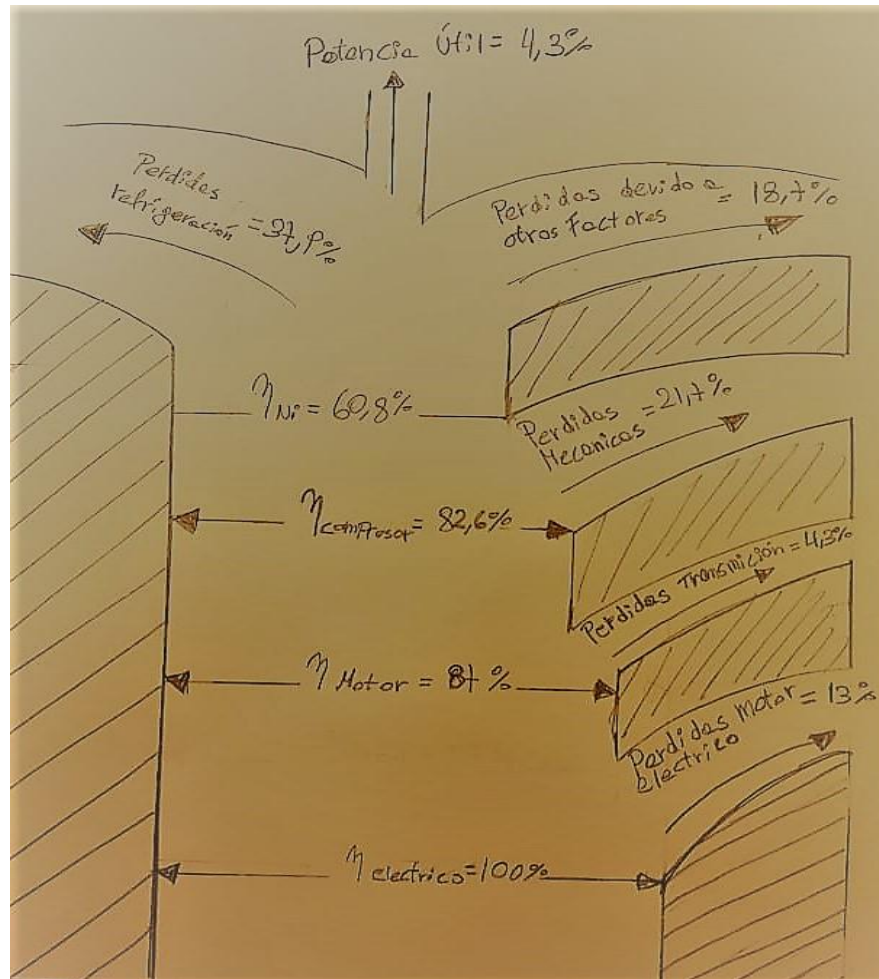 Potencia Útil = 4,3%
Perdidas
refrigeración = 37,9%
Perdidas devido a
otros Factores = 18,7%
ηNi = 60,8%
Perdidas
Mecanicas = 21,7%
ηcompresor = 82,6%
Perdidas Transmición = 4,3%
η Motor = 87 %
Perdidas motor = 13%
electrico
η electrico = 100%